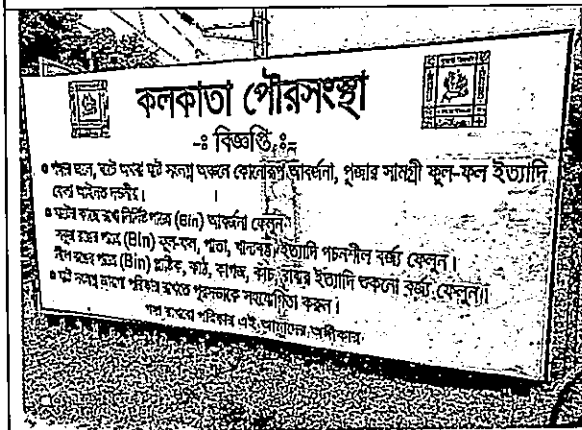 কলকাতা পৌরসংস্থা
-ঃ বিজ্ঞপ্তি ঃ-
গঙ্গার জলে, ঘাটে অথবা ঘাট সংলগ্ন অঞ্চলে কোনোরূপ আবর্জনা, পুজার সামগ্রী ফুল-ফল ইত্যাদি
ফেলা আইনত দণ্ডনীয়।
ঘাটের কাছে রাখা নির্দিষ্ট পাত্রে (Bin) আবর্জনা ফেলুন
সবুজ রঙের পাত্রে (Bin) ফুল-ফল, পাতা, খাদ্যবস্তু ইত্যাদি পচনশীল বর্জ্য ফেলুন।
নীল রঙের পাত্রে (Bin) প্লাস্টিক, কাঠ, কাগজ, কাচ, রাবার ইত্যাদি শুকনো বর্জ্য ফেলুন।
ঘাট সংলগ্ন জায়গা পরিষ্কার রাখতে পুরসভাকে সহযোগিতা করুন।
গঙ্গা রাখবো পরিষ্কার এই আমাদের অঙ্গীকার